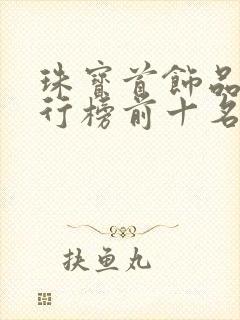 珠寳首飾品
行榜前十名
抉鱼丸